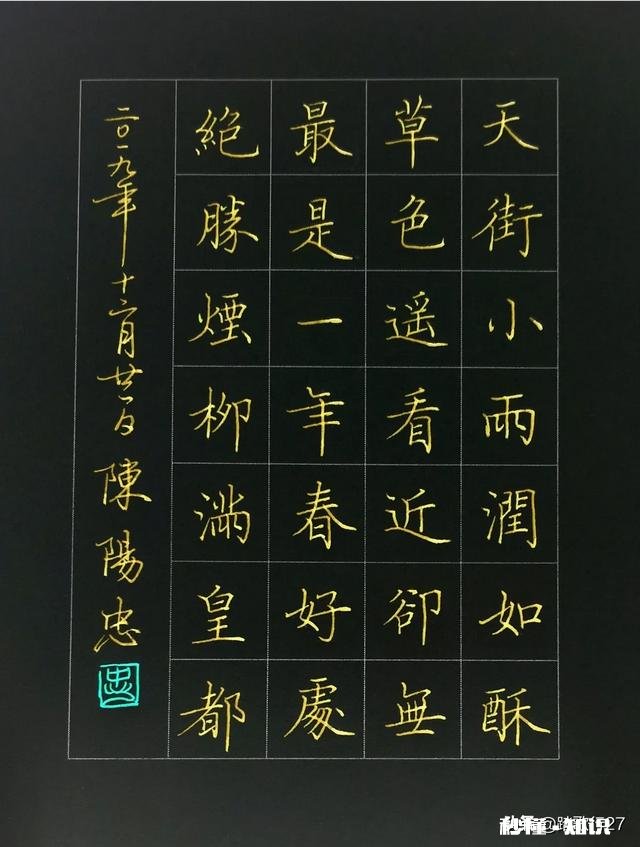 天街小雨潤如酥
草色遥看近卻無
最是一年春好處
絕勝煙柳滿皇都
二〇一九年十二月廿一日 陳陽忠
忠
秒懂·知识